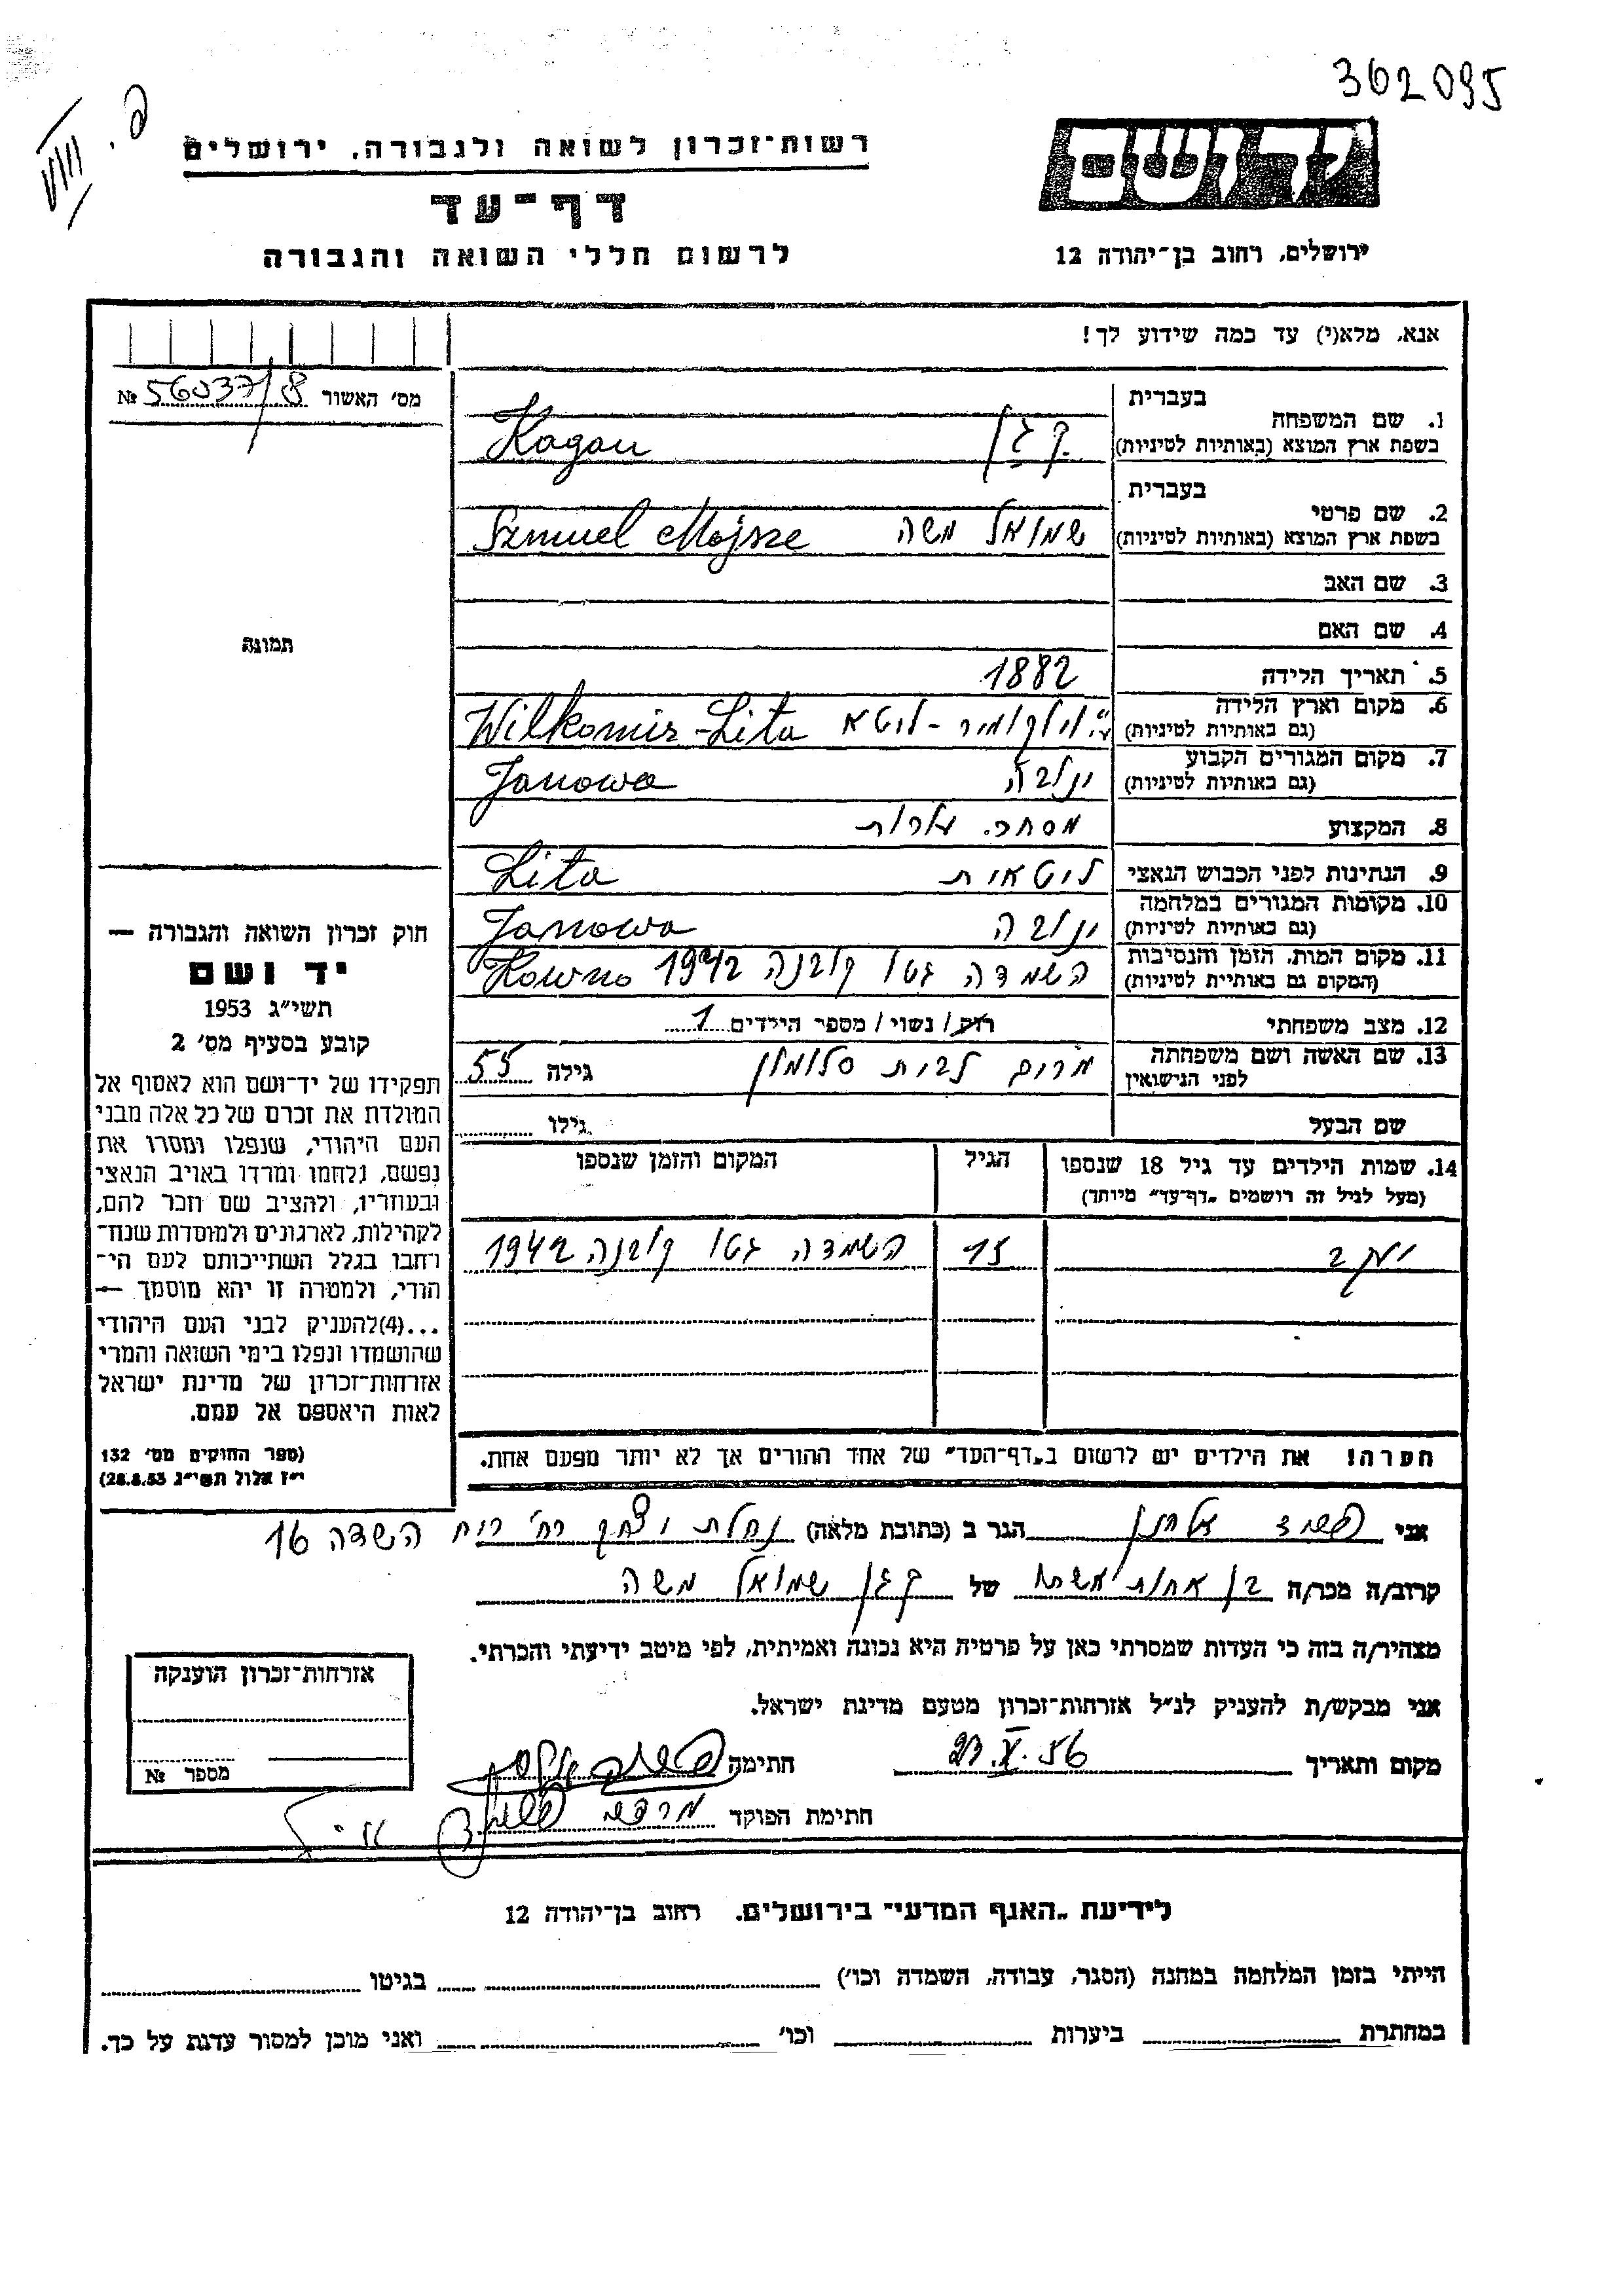 362095
רשות־זכרון לשואה ולגבורה, ירושלים
דף־עד
לרשום חללי השואה והגבורה
ידושם
ירושלים, רחוב בן־יהודה 12
אנא, מלא(י) עד כמה שידוע לך!
מס׳ האשור 56037/8 №
1. שם המשפחה בעברית קגן
בשפת ארץ המוצא (באותיות לטיניות) Kagan
2. שם פרטי בעברית שמואל משה
בשפת ארץ המוצא (באותיות לטיניות) Szmuel Mojsze
3. שם האב
4. שם האם
5. תאריך הלידה 1882
6. מקום וארץ הלידה (גם באותיות לטיניות) וילקומיר - ליטא Wilkomir - Lita
7. מקום המגורים הקבוע (גם באותיות לטיניות) ינובה Janowa
8. המקצוע מסחר עורות
9. הנתינות לפני הכבוש הנאצי ליטאית Lita
10. מקומות המגורים במלחמה (גם באותיות לטיניות) ינובה Janowa
11. מקום המות, הזמן והנסיבות (המקום גם באותיית לטיניות) השמדה גטו קובנה 1942 Kowno
12. מצב משפחתי רוק / נשוי / מספר הילדים 1
13. שם האשה ושם משפחתה לפני הנישואין מרים לבית סלומון גילה 55
שם הבעל גילו
14. שמות הילדים עד גיל 18 שנספו הגיל המקום והזמן שנספו
(מעל לגיל זה רושמים „דף־עד״ מיוחד)
יעקב 15 השמדה גטו קובנה 1942
הערה! את הילדים יש לרשום ב„דף־העד״ של אחד ההורים אך לא יותר מפעם אחת.
תמונה
חוק זכרון השואה והגבורה —
יד ושם
תשי״ג 1953
קובע בסעיף מס׳ 2
תפקידו של יד־ושם הוא לאסוף אל
המולדת את זכרם של כל אלה מבני
העם היהודי, שנפלו ומסרו את
נפשם, נלחמו ומרדו באויב הנאצי
ובעוזריו, ולהציב שם וזכר להם,
לקהילות, לארגונים ולמוסדות שנח־
רחבו בגלל השתייכותם לעם הי־
הודי, ולמטרה זו יהא מוסמך —
...(4)להעניק לבני העם היהודי
שהושמדו ונפלו בימי השואה והמרי
אזרחות־זכרון של מדינת ישראל
לאות היאספם אל עמם.
(ספר החוקים מס׳ 132
י״ז אלול תשי״ג 28.8.53)
אני הגר ב (כתובת מלאה) נחלת יצחק רח׳ השדה 16
קרוב/ה מכר/ה בן אחות אשתו של קגן שמואל משה
מצהיר/ה בזה כי העדות שמסרתי כאן על פרטיה היא נכונה ואמיתית, לפי מיטב ידיעתי והכרתי.
אני מבקש/ת להעניק לנ״ל אזרחות־זכרון מטעם מדינת ישראל.
מקום ותאריך 23.X.56 חתימה
חתימת הפוקד
אזרחות־זכרון הוענקה
מספר №
לידיעת „האגף המדעי״ בירושלים. רחוב בן־יהודה 12
הייתי בזמן המלחמה במחנה (הסגר, עבודה, השמדה וכו׳) בגיטו
במחתרת ביערות וכו׳ ואני מוכן למסור עדות על כך.